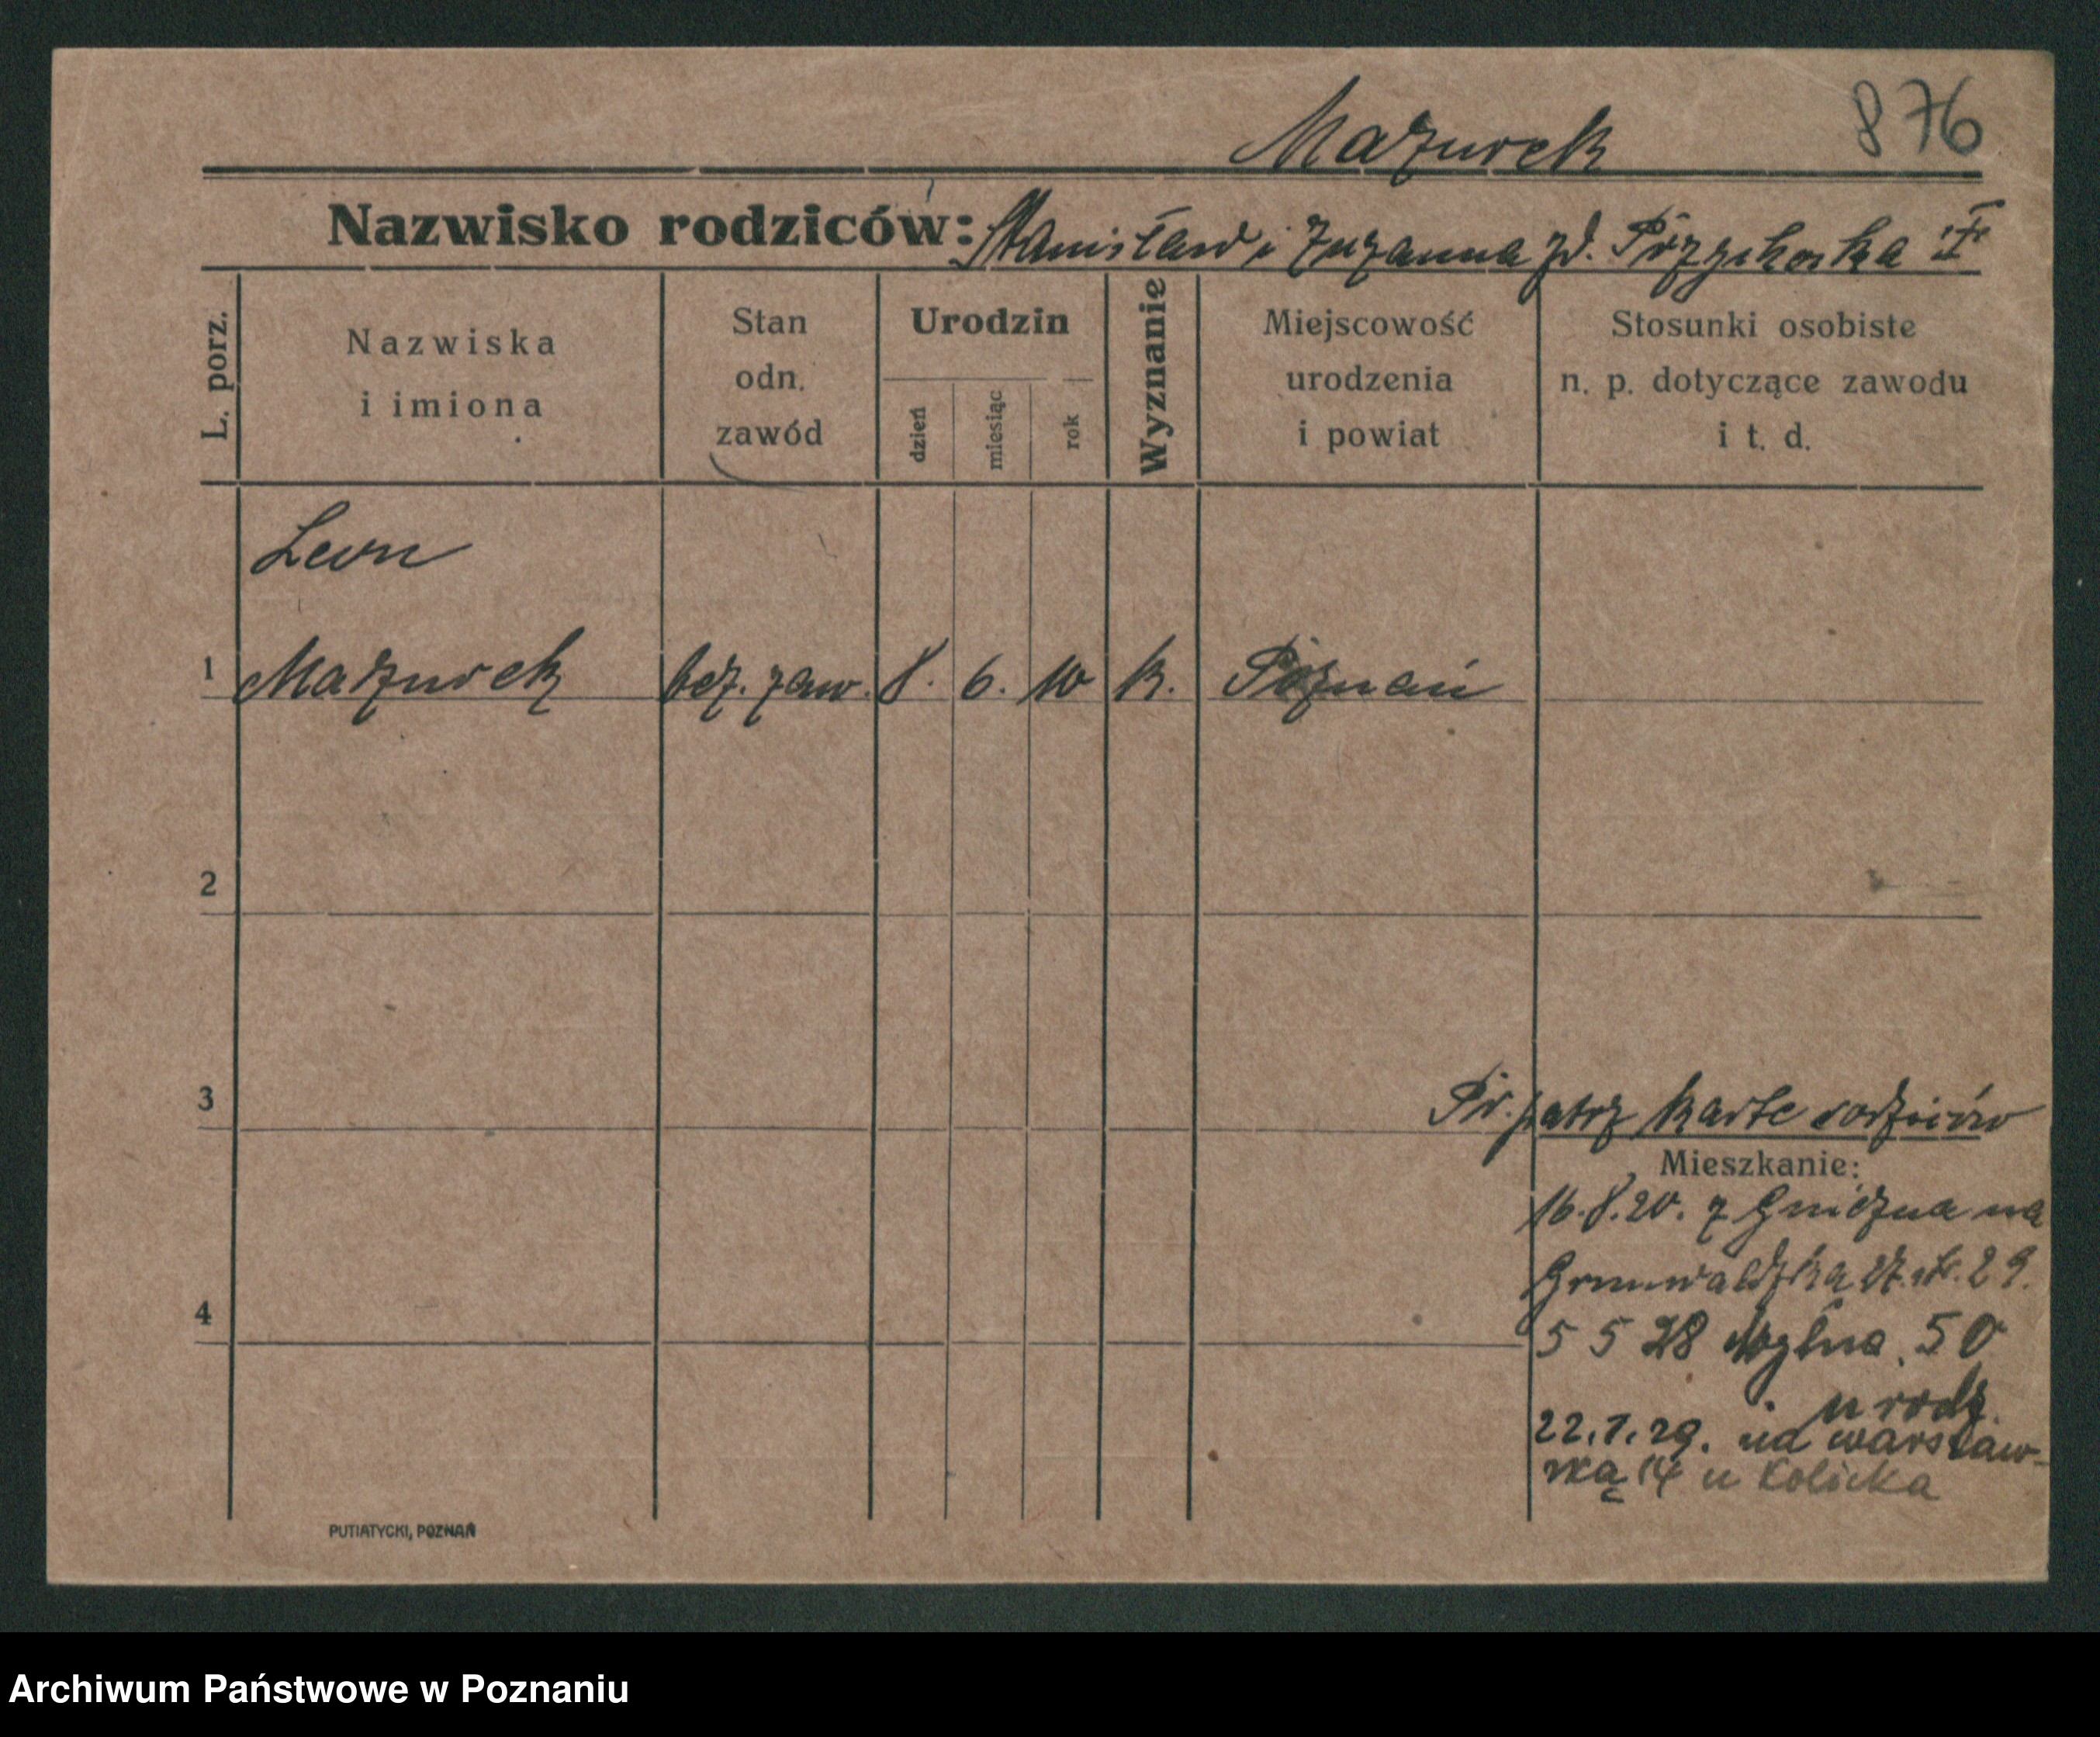 Mazurek 876
Nazwisko rodziców: Stanisław i Zuzanna zd.
L. porz.
Nazwiska
i imiona
Stan
odn.
zawód
Urodzin
dzień
miesiąc
rok
Wyznanie
Miejscowość
urodzenia
i powiat
Stosunki osobiste
n. p. dotyczące zawodu
i t. d.
Leon
1 Mazurek bez. zaw. 8. 6. 10 k. Poznań
2
3
Pr. patrz karte rodziców
Mieszkanie:
16.8.20. z Gniezna na
Grunwaldzka 27. 29.
4
5 5 28 50
u rodz.
22.7.29. na warszaw-
ską 14 u Kolicka
PUTIATYCKI, POZNAŃ
Archiwum Państwowe w Poznaniu